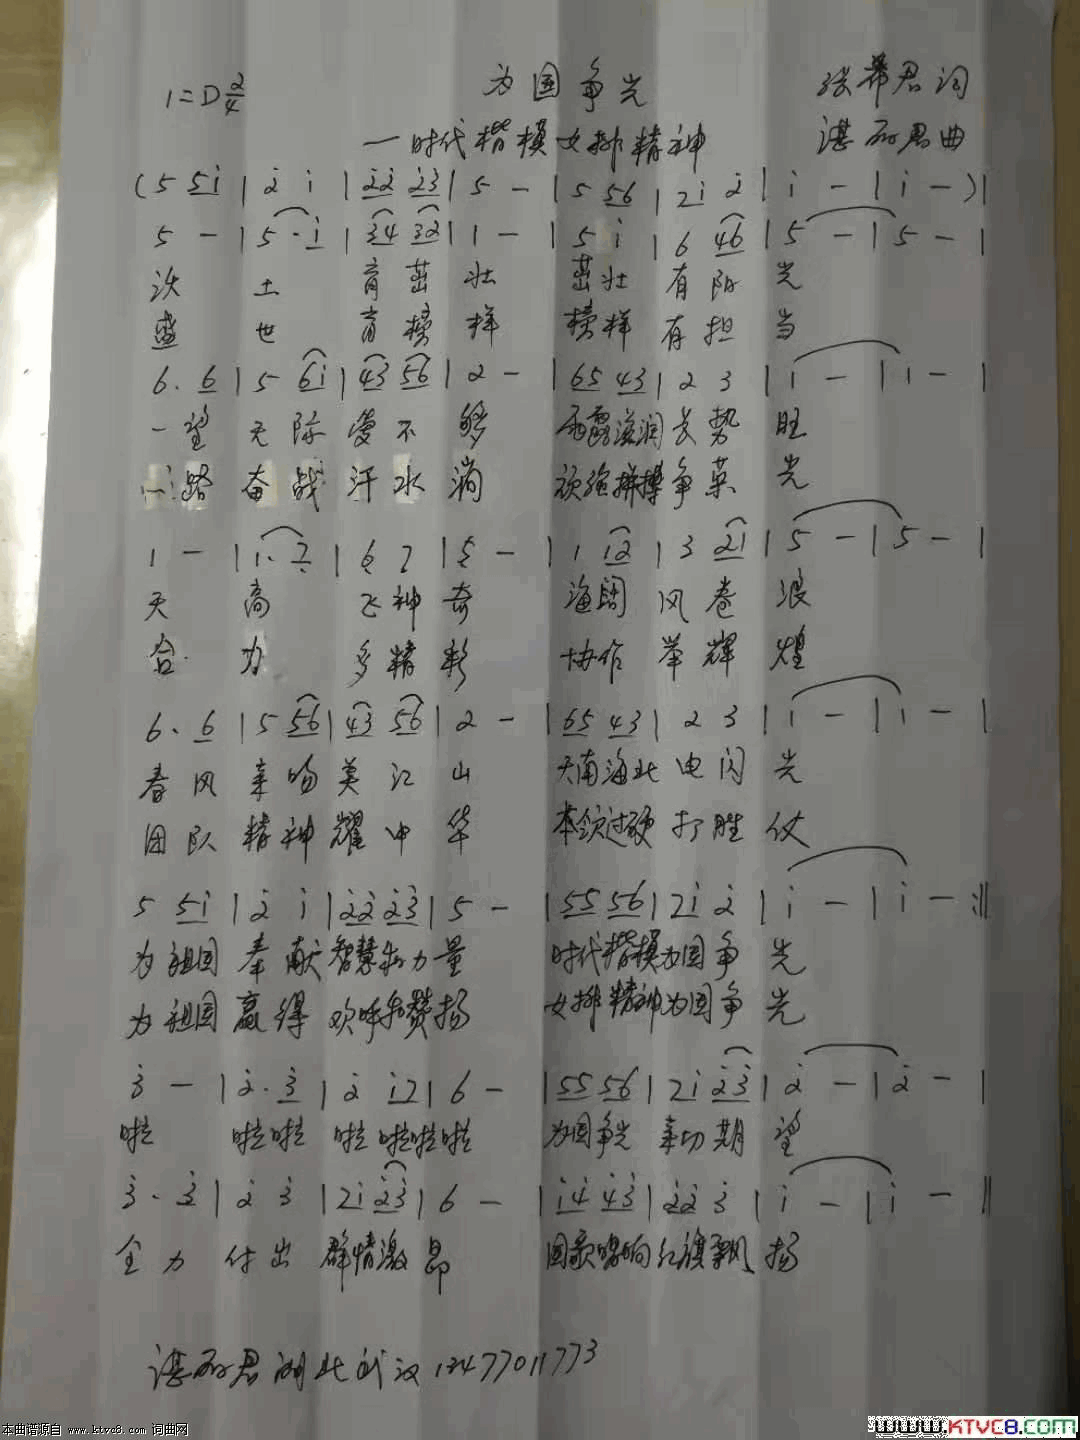 1=D 2/4 为国争光 张希君词
—时代楷模女排精神 湛丽君曲
(5 5i | 2 i | 22 23 | 5 - | 5 56 | 2i 2 | i - | i -)|
5 - | 5 · i | 34 32 | 1 - | 5 i | 6 46 | 5 - | 5 - |
沃 土 育茁 壮 茁壮 有阳 光
盛 世 育榜 样 榜样 有担 当
6. 6 | 5 6i | 43 56 | 2 - | 65 43 | 2 3 | i - | i - |
一望 无际 望不 够 雨露滋润长势 旺
一路 奋战 汗水 淌 顽强拼搏争英 光
1 - | 1. 7 | 6 7 | 5 - | 1 12 | 3 21 | 5 - | 5 - |
天 高 飞神 奇 海阔 风卷 浪
合 力 多精彩 协作 举辉 煌
6. 6 | 5 56 | 43 56 | 2 - | 65 43 | 2 3 | i - | i - |
春风 亲吻美江 山 天南海北电闪 光
团队 精神耀中 华 本领过硬打胜 仗
5 5i | 2 i | 22 23 | 5 - | 55 56 | 2i 2 | i - | i - :||
为祖国 奉献智慧和力量 时代楷模为国争 光
为祖国 赢得 欢呼和赞扬 女排精神为国争 光
3 - | 2. 3 | 2 i7 | 6 - | 55 56 | 2i 23 | 2 - | 2 - |
啦 啦啦 啦啦啦啦 为国争光 亲切期 望
3. 3 | 2 3 | 2i 23 | 6 - | i4 43 | 22 3 | i - | i - ||
全力 付出 群情激 昂 国歌唱响红旗飘 扬
湛丽君湖北武汉13477011773
本曲谱源自 www.ktvc8.com 词曲网
www.KTVC8.com